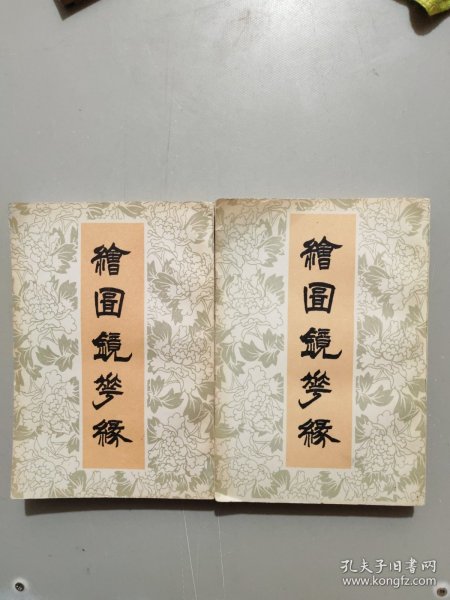 繪圖鏡花緣
繪圖鏡花緣
孔夫子旧书网
www.kongfz.com